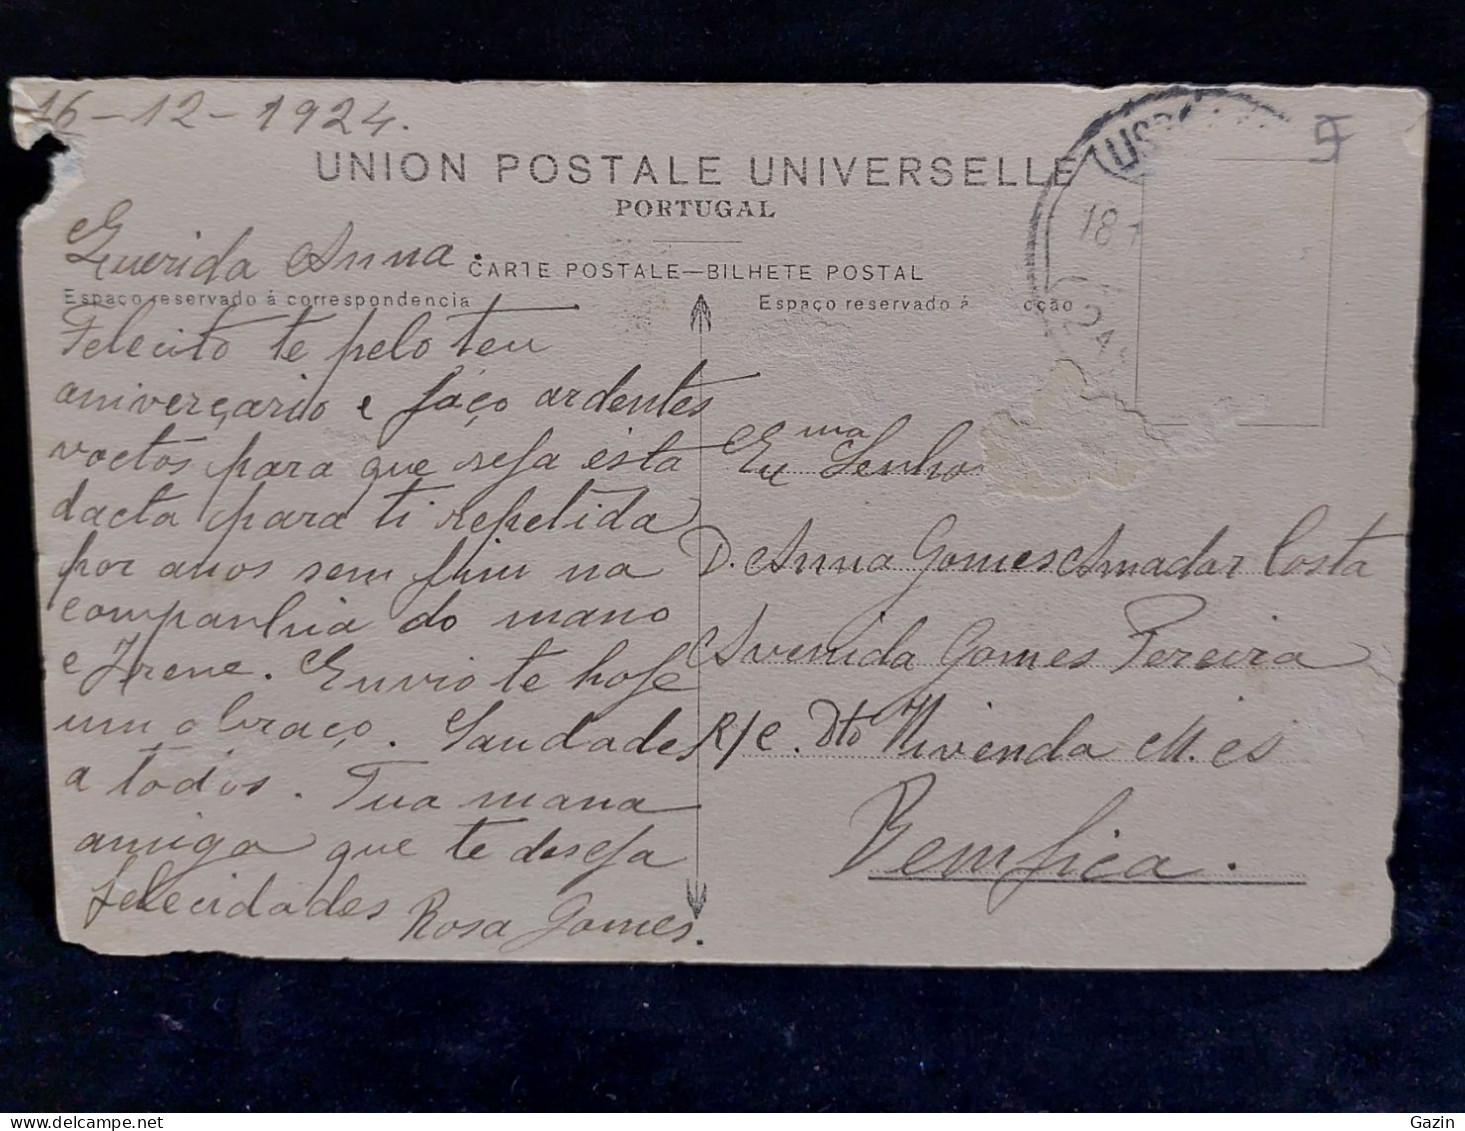 16-12-1924.
UNION POSTALE UNIVERSELLE
PORTUGAL
CARTE POSTALE—BILHETE POSTAL
Espaço reservado á correspondencia
Querida Anna.
Felecito te pelo teu
aniverçario e faço ardentes
voctos para que seja ésta
dacta para ti repetida
por anos sem fim na
companhia do mano
e Irene. Envio te hoje
um abraço. Saudades
a todos. Tua mana
amiga que te deseja
felecidades Rosa Gomes.
Espaço reservado á cção
Exma Senho
D. Anna Gomes Amador Costa
Avenida Gomes Pereira
R/c. Dto Vivenda
Bemfica.
18
5
Gazin